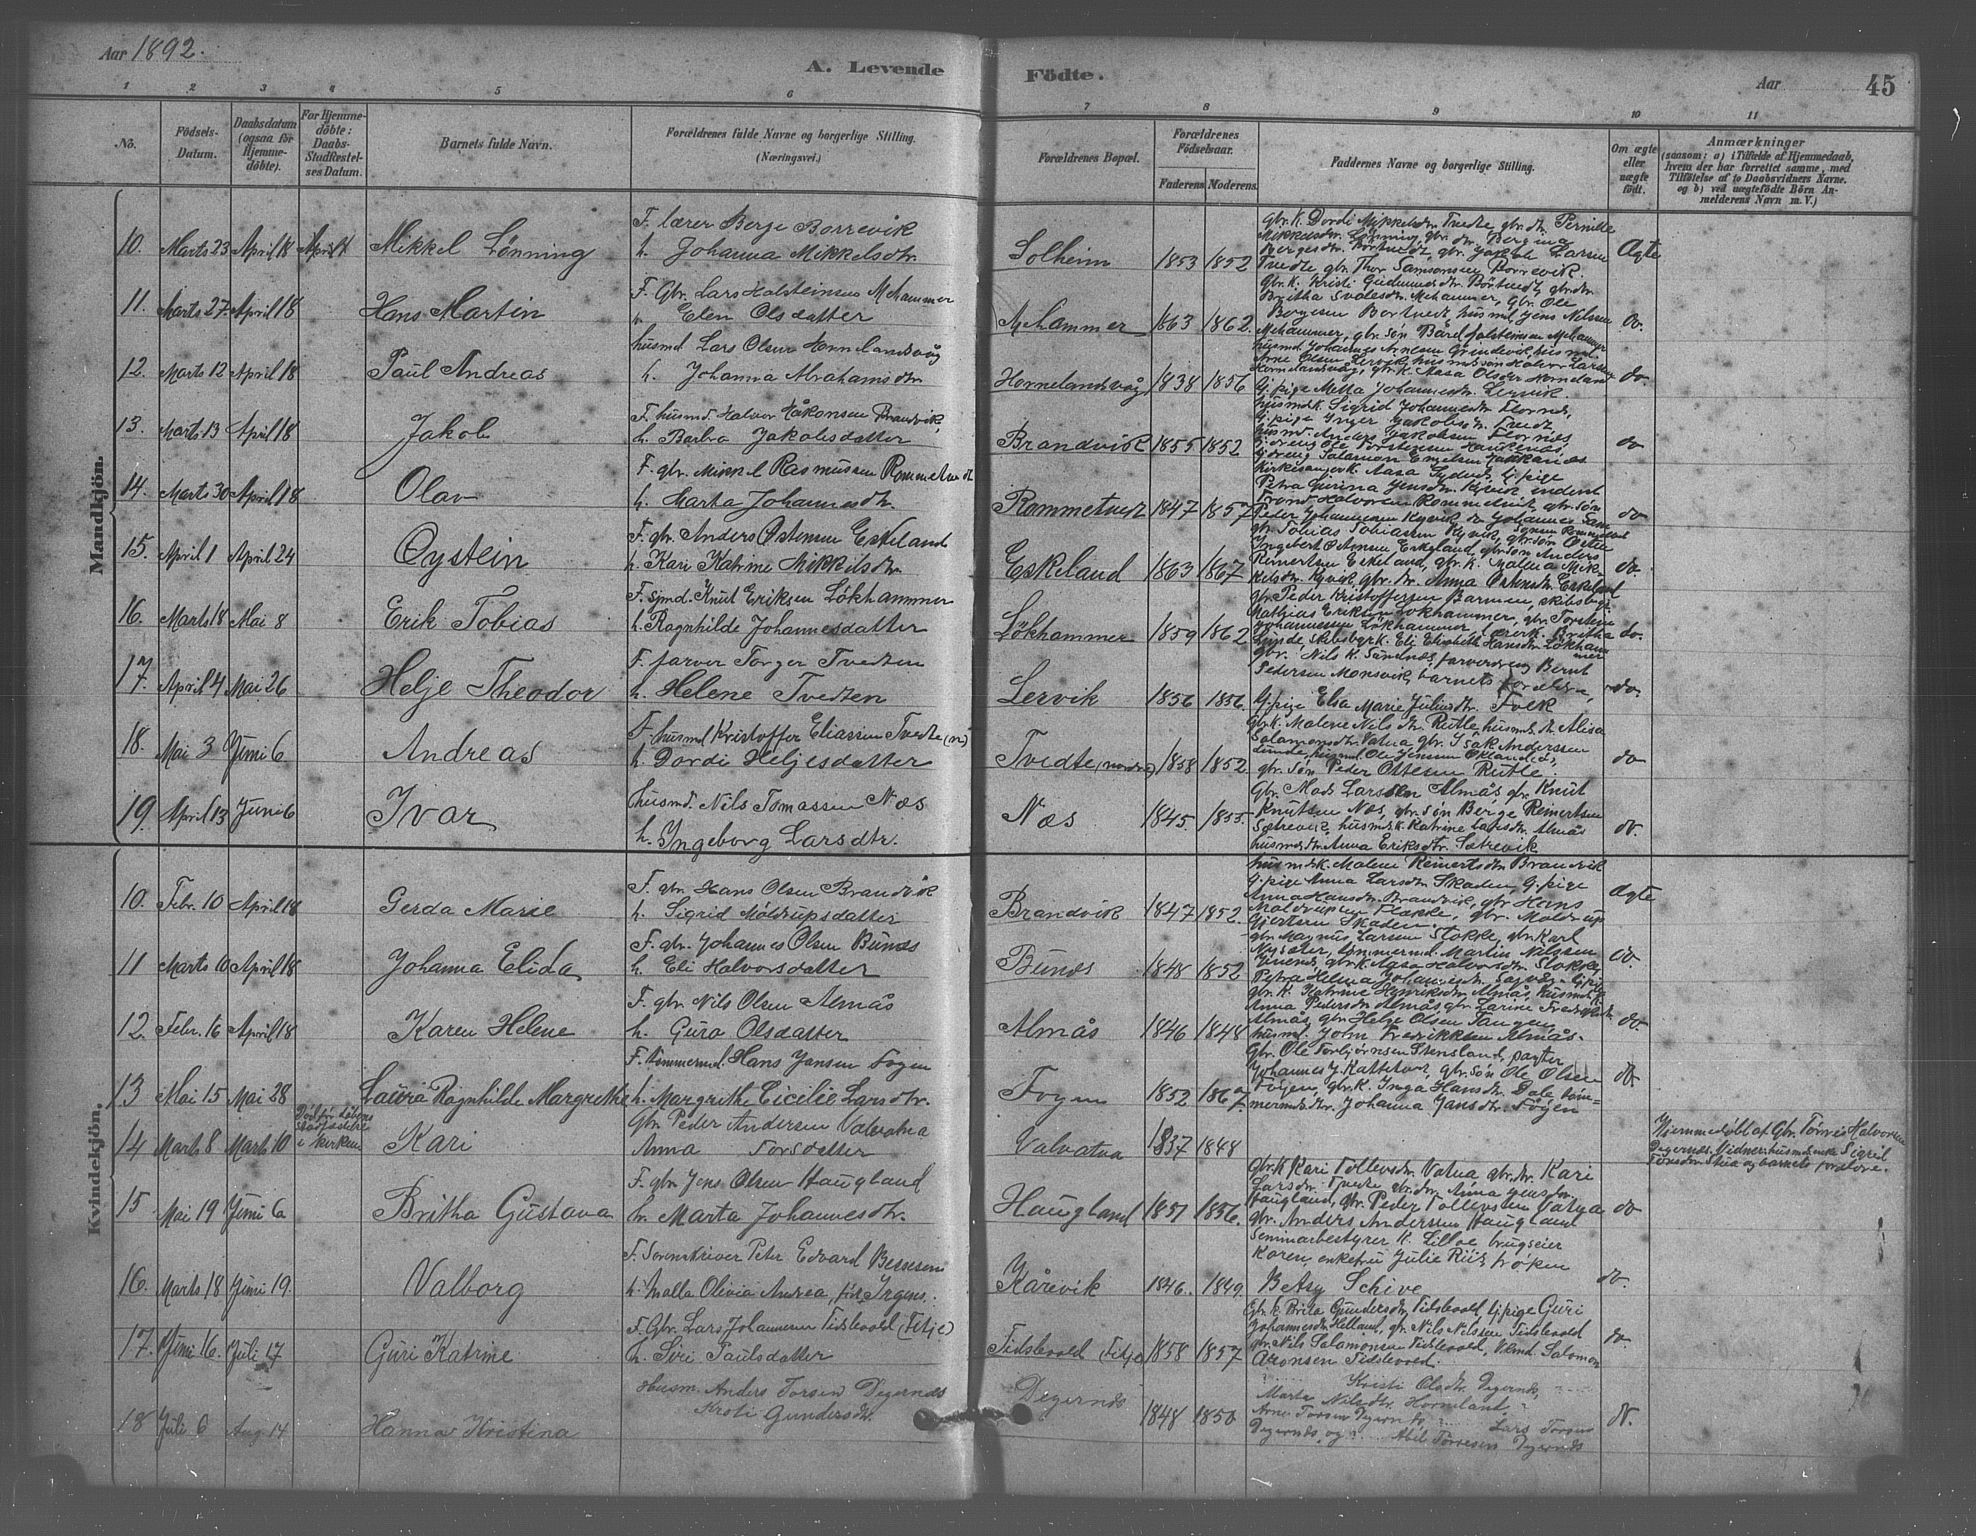 Aar 1892.
A. Levende Födte.
Aar
45
1 2 3 4 5 6 7 8 9 10 11
No.
Födsels-Datum.
Daabsdatum (ogsaa för Hjemme-döbte).
For Hjemme-döbte: Daabs-Stadfæstel-ses Datum.
Barnets fulde Navn.
Forældrenes fulde Navne og borgerlige Stilling. (Næringsvei.)
Forældrenes Bopæl.
Forældrenes Födselsaar.
Faderens. Moderens.
Faddernes Navne og borgerlige Stilling.
Om ægte eller uægte födt.
Anmærkninger (saasom: a) i Tilfælde af Hjemmedaab, hvem der har forrettet samme, med Tilföielse af to Daabsvidners Navne. og b) ved uægtefödte Börn An-melderens Navn m. V.)
Mandkjön.
10. Marts 23 April 18 April 1 Mikkel Lönning F. lærer Berge Borrevik h. Johanna Mikkelsdtr. Solheim 1853 1852 gbr.k. Dordi Mikkelsdtr. Tvedte gbr. dtr. Pernille Mikkelsdtr. Lönning, gbr. dtr. Bergine Bergesdtr. Börtvedt, gbr. Jakob Larsen Tvedte gbr. Thor Samsonsen Borrevik. Ægte
11. Marts 27. April 18 Hans Martin F. Gbr. Lars Holsteinsen Mehammer h. Elen Olsdatter Mehammer 1863 1862. gbr. k. Kristi Gudmundsdtr. Börtvedt, gbr. dtr. Britha Mehammer, gbr. Ole Börgesen Bortvedt, husmd. Jens Nilssen Mehammer, gbr. søn Bård Holsteinsen Mehammer do.
12. Marts 12 April 18 Paul Andreas husmd. Lars Olsen Hornelandsvåg h. Johanna Abrahamsdtr. Hornelandsvåg 1838 1856 husmd. Johannes Arnesen Grindevik husmd. Arne Olsen Lervik, husmdssøn Halvor Larsen Hornelandsvåg, gbr. k. Aasa Olsdtr Horneland tj. pige Metta Johannesdtr. Lervik. do.
13. Marts 13 April 18 Jakob F. husmd. Halvor Håkonsen Brandvik, h. Barbro Jakobsdatter Brandvik 1855 1852 husmdsk. Sigrid Johannesdtr. Flornes, tj. pige Inger Jakobsdtr. Tvedt husmd. Anders Jakobsen Flornes tj. dreng Ole Torstensen tj. dreng Salamon Engelsen do
14. Marts 30 April 18 Olav F. gbr. Mikkel Rasmussen Rommetvedt h. Marta Johannesdtr. Rommetvedt 1847 1857 Kirkesangerk. Aasa tj. pige Petra Jensdtr. Kyvik, Trond Halvorsen Rommetvedt, gbr. søn Peder Johannesen Kyvik do
15. April 1 April 24 Oystein F. gbr. Anders Ostensen Eskeland h. Kari Katrine Mikkelsdtr. Eskeland 1863 1867 gbr. Tobias Tobiassen Kyvik, gbr. søn Osten Ingebert Ostensen Eskeland, gbr. søn Anders Reinertsen Eskeland, gbr. k. Malena Mikkelsdtr. Kyvik, gbr. dtr. Anna Ostensdtr. Eskeland do.
16. Marts 18 Mai 8 Erik Tobias F. sjmd. Knut Eriksen Lökhammer h. Ragnhilde Johannesdatter Lökhammer 1859 1862 gbr. Peder Kristoffersen Barmen, skibsbgr. Mathias Eriksen Lökhammer, gbr. Torsten Johannessen Lökhammer, lærerk. Britha Lunde, skibsbgr k. Eli Elisabeth Hansdtr. Lökhammer do.
17. April 4 Mai 26 Helje Theodor F. farver Torger Tvedten h. Helene Tvedten Lervik 1856 1856. gbr. Nils K. Sundnæs, farverdreng Bernt Pedersen Monsvik, barnets forældre, tj. pige Elsa Marie Juliusdtr. Folk do.
18. Mai 3 Juni 6 Andreas F. husmd Kristoffer Eliassen Tvedte (n.) h. Dordi Heljesdatter Tvedte (nordre) 1858 1852. gbr.k. Malene Nilsdtr. Rutle, husmds. dtr. Alisa Salamonsdtr. Vatna, gbr. Isak Anderssen Lunde, husmd. Ole Jensen Okland, gbr. søn Peder Ottesen Rutle. do
19. April 13 Juni 6 Ivar husmd. Nils Tomassen Næs h. Ingeborg Larsdtr. Næs 1845. 1855. Gbr. Mads Larssen Almås gbr. Knut Knutsen Næs, gbr. søn Berge Reinertsen Sætrevik, husmdsk. Katrine Larsdtr. Almås husmdsdtr. Anna Eriksdtr. Sætrevik do.
Kvindekjön.
10. Febr. 10 April 18 Gerda Marie F. gbr. Hans Olsen Brandvik h. Sigrid Möldrupsdatter Brandvik 1847 1852. husmdsk. Malene Reinertsdtr. Brandvik tj. pige Anna Larsdtr. Skaden, tj. pige Anna Hansdtr. Brandvik, gbr. Hans Moldrupsen Flække, gbr. Moldrup Gjertsen Skaden. Ægte
11 Marts 10 April 18 Johanna Elida F. gbr. Johannes Olsen Bunæs h. Eli Halvorsdatter Bunæs 1848 1852 gbr. Magnus Larsen Stokke, gbr. Karl Nysæter, tømmermd. Martin Nilsen gbr. k. Aasa Halvorsdtr. Stokke, Petra Helena Johannesdtr. do.
12. Febr. 16 April 18 Karen Helene F. gbr. Nils Olsen Almås h. Guro Olsdatter Almås 1846 1848 gbr. k. Katrine Henriksdtr. Almås, husmdk. Anna Pedersdtr. Almås gbr. Larine Fredriksdtr. Almås, gbr. Helge Olsen Tangen husmd. John Fredrikksen Almås. do
13 Mai 15 Mai 28 Laura Ragnhilde Margrethe F. tömmermd. Hans Jansen Fogen h. Margrethe Cicilie Larsdtr. Fogen 1852 1867. Gbr. Ole Torbjörnsen Stensland, pagter Johannes J. Kattetvet, gbr. søn Ole Olsen Fögen, gbr. k. Inga Hansdtr. Dale töm=mermds. dtr. Johanna Jansdtr. Fögen do.
14 Marts 8 Marts 10 Död för dåbens stadfæstelse i kirken Kari Gbr. Peder Andersen Valvatna Anna Torsdatter Valvatna 1837 1848 Hjemmedöbt af Gbr. Törris Halvorsen Degernæs. Vidner: husmdsenke Sigrid Törrisdtr. Stua og barnets forældre.
15 Mai 19 Juni 6 Britha Gustava F. gbr. Jens Olsen Haugland h. Marta Johannesdtr. Haugland 1851 1856. Gbr.k Kari Tollevsdtr. Vatna gbr. dtr. Kari Larsdtr. Tvedte gbr. dtr. Anna Jensdtr. Haugland, gbr. Peder Tollevsen Vatna gbr. Anders Anderssen Haugland do
16. Marts 18 Juni 19. Valborg F. Sorenskriver Peter Edvard Bessesen h. Malla Olivia Andrea, född Irgens. Kårevik 1846. 1849. Seminarbestyrer K. Lilloe brugseier Koren, enkefru Julie Riis, fröken Betsy Schive do.
17. Juni 16. Juli 17 Guri Katrine F. Gbr. Lars Johannesen Tidsbvold (Fitje) h. Siri Paulsdatter Tidsbvold (Fitje) 1858 1857 Gbr. k. Brita Gundersdtr. Tidsbvold tj. pige Guri Johannesdtr. Helland, gbr. Nils Nilssen Tidsbvold gbr. Nils Salomonsen Tidsbvold, Salomon Aronsen Tidsbvold. do.
18 Juli 6 Aug 14 Hanna Kristina Husm. Anders Torsen Degernæs Kroti Gundersdtr. Degernæs 1848 1850 Kristi Olsdtr. Degernæs, Marta Nilsdtr. Horneland, Arne Torsen Degernæs, Lars Torsen Degernæs og Abel Törresen Degernæs do.